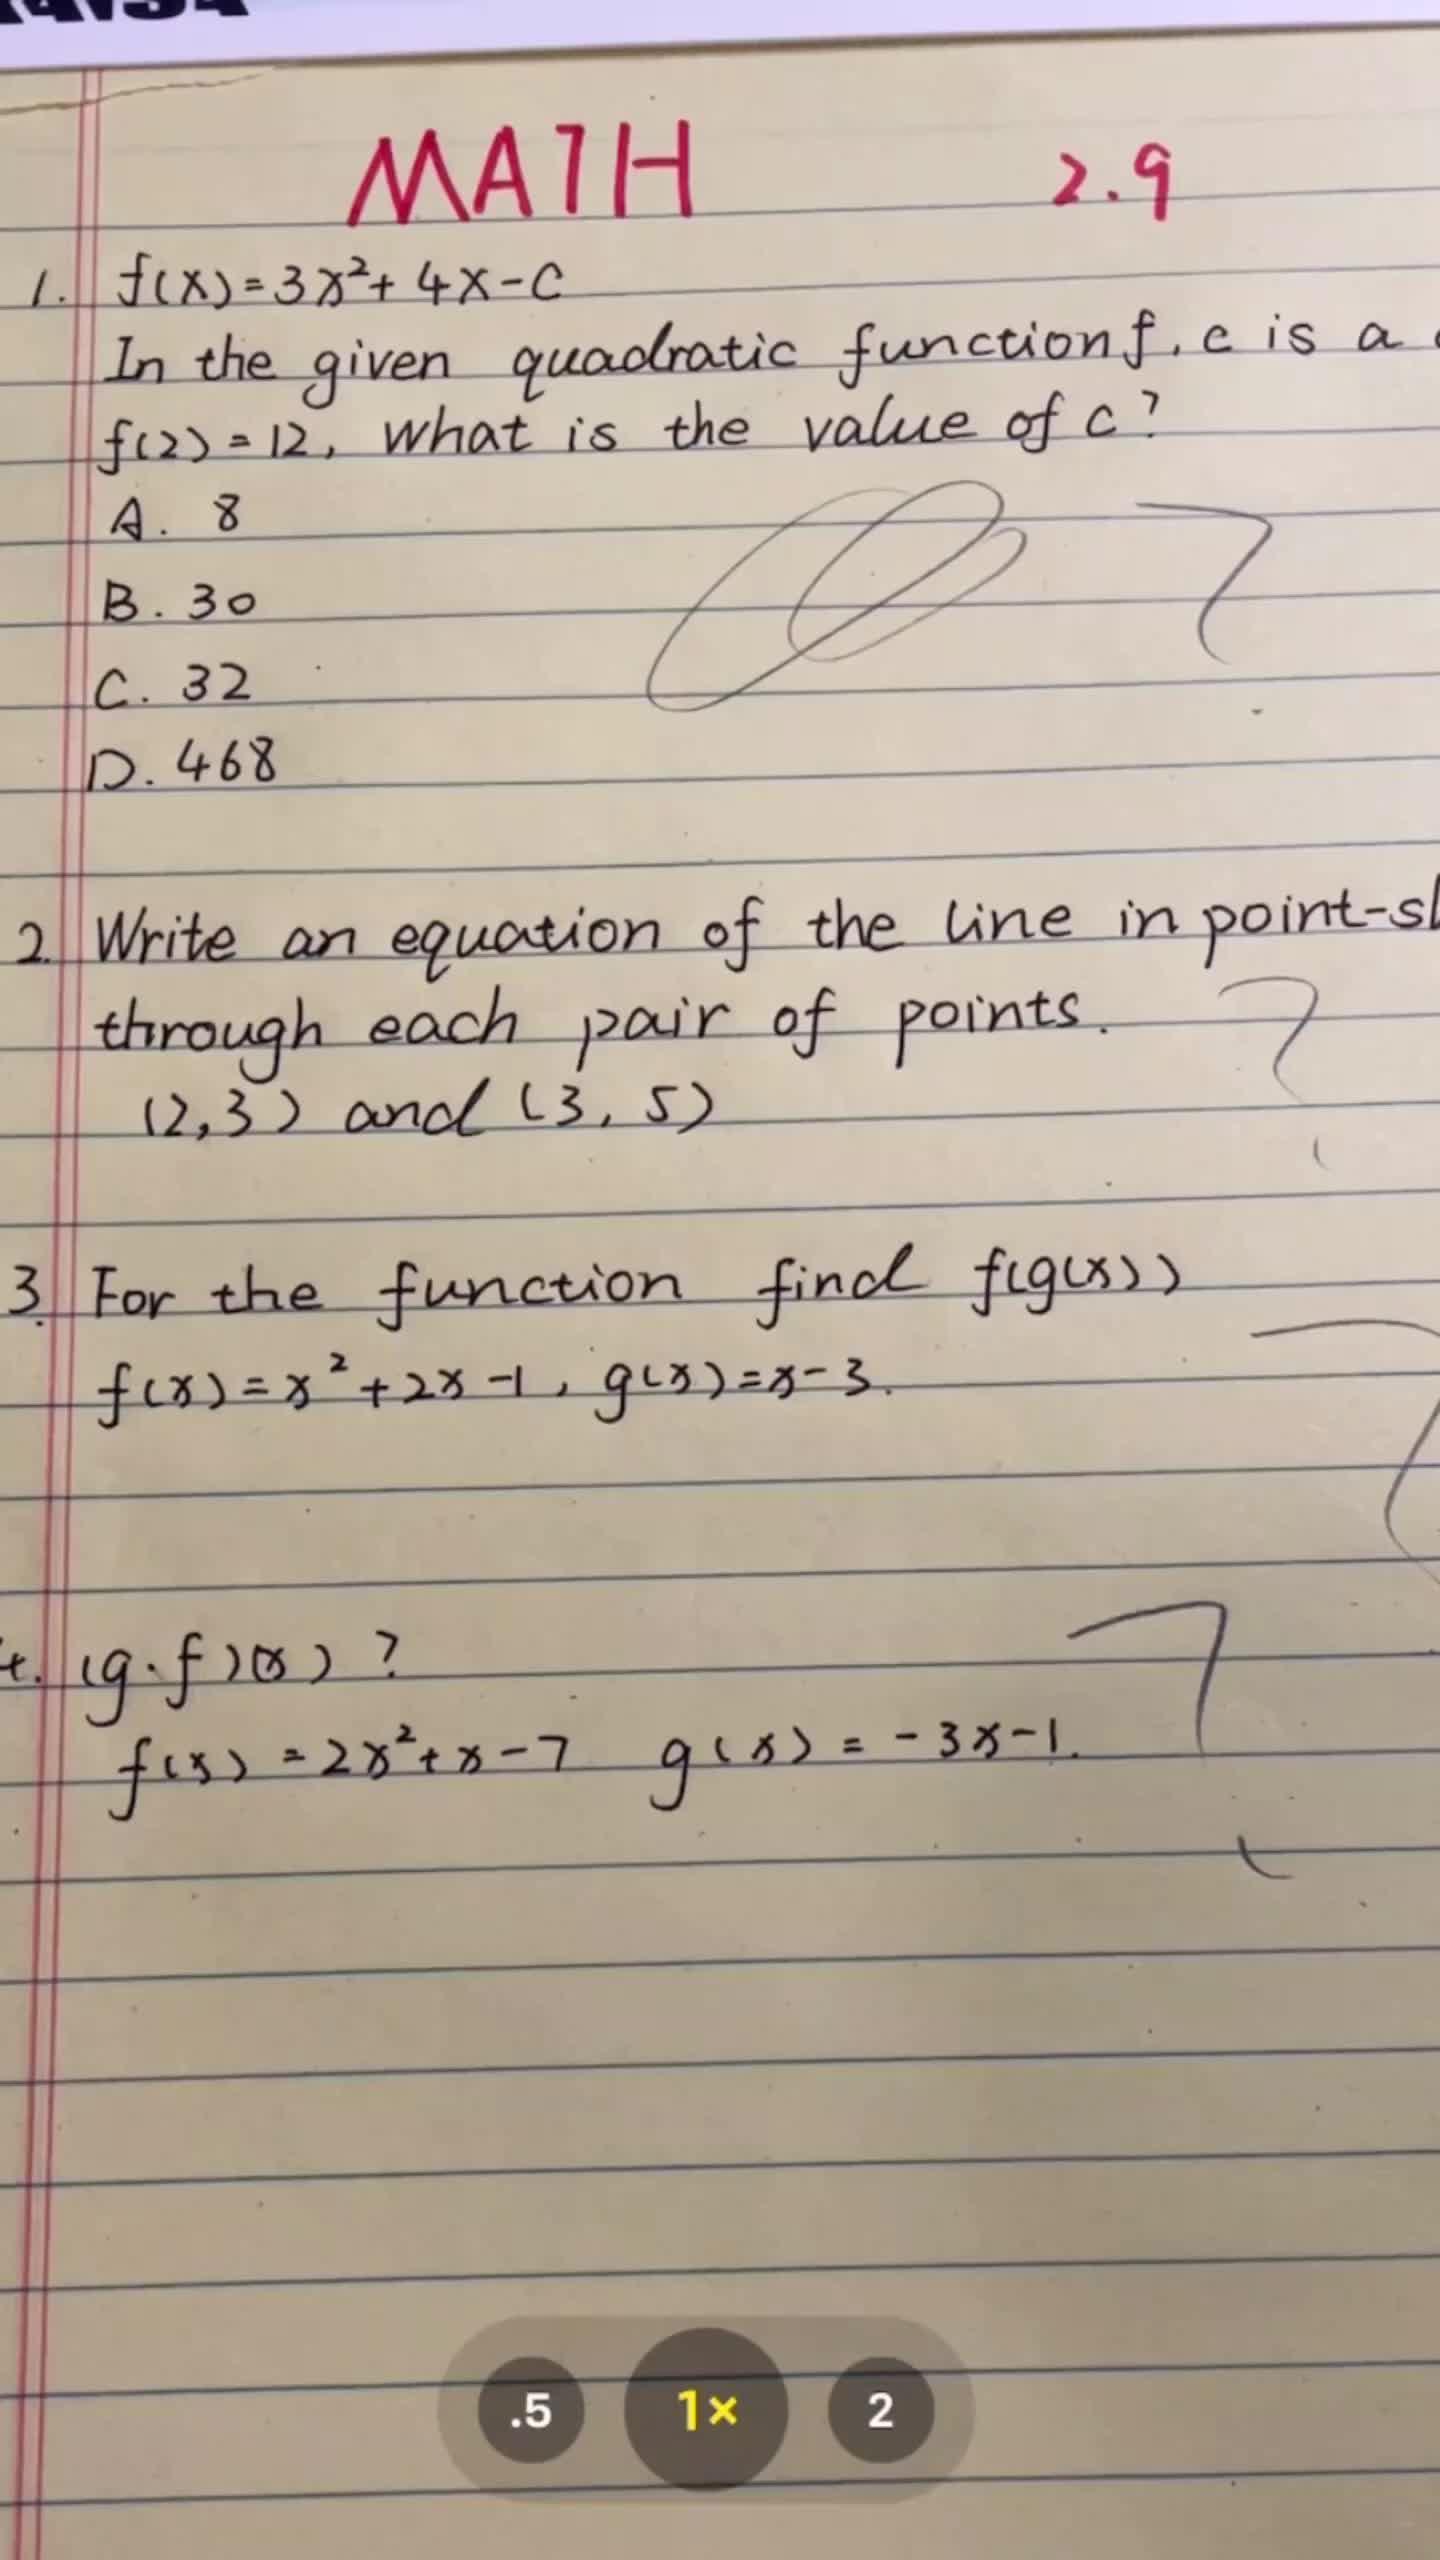 MATH 2.9
1. f(x)=3x²+4x-C
In the given quadratic function f, c is a
f(2)=12, what is the value of c?
A. 8
B. 30
C. 32
D. 468
2. Write an equation of the line in point-sl
through each pair of points.
(2,3) and (3,5)
3. For the function find f(g(x))
f(x)=x²+2x-1, g(x)=x-3.
4. (g·f)(x)?
f(x)=2x²+x-7 g(x)=-3x-1.
.5 1× 2